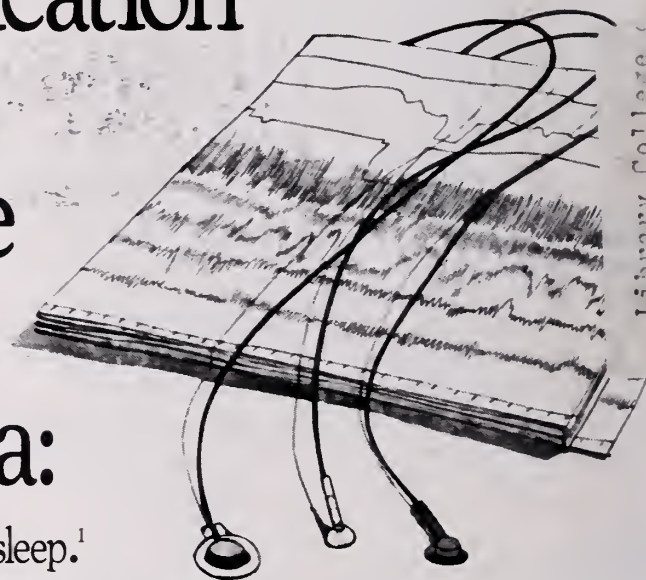 ication
e
a:
sleep.¹
Library College